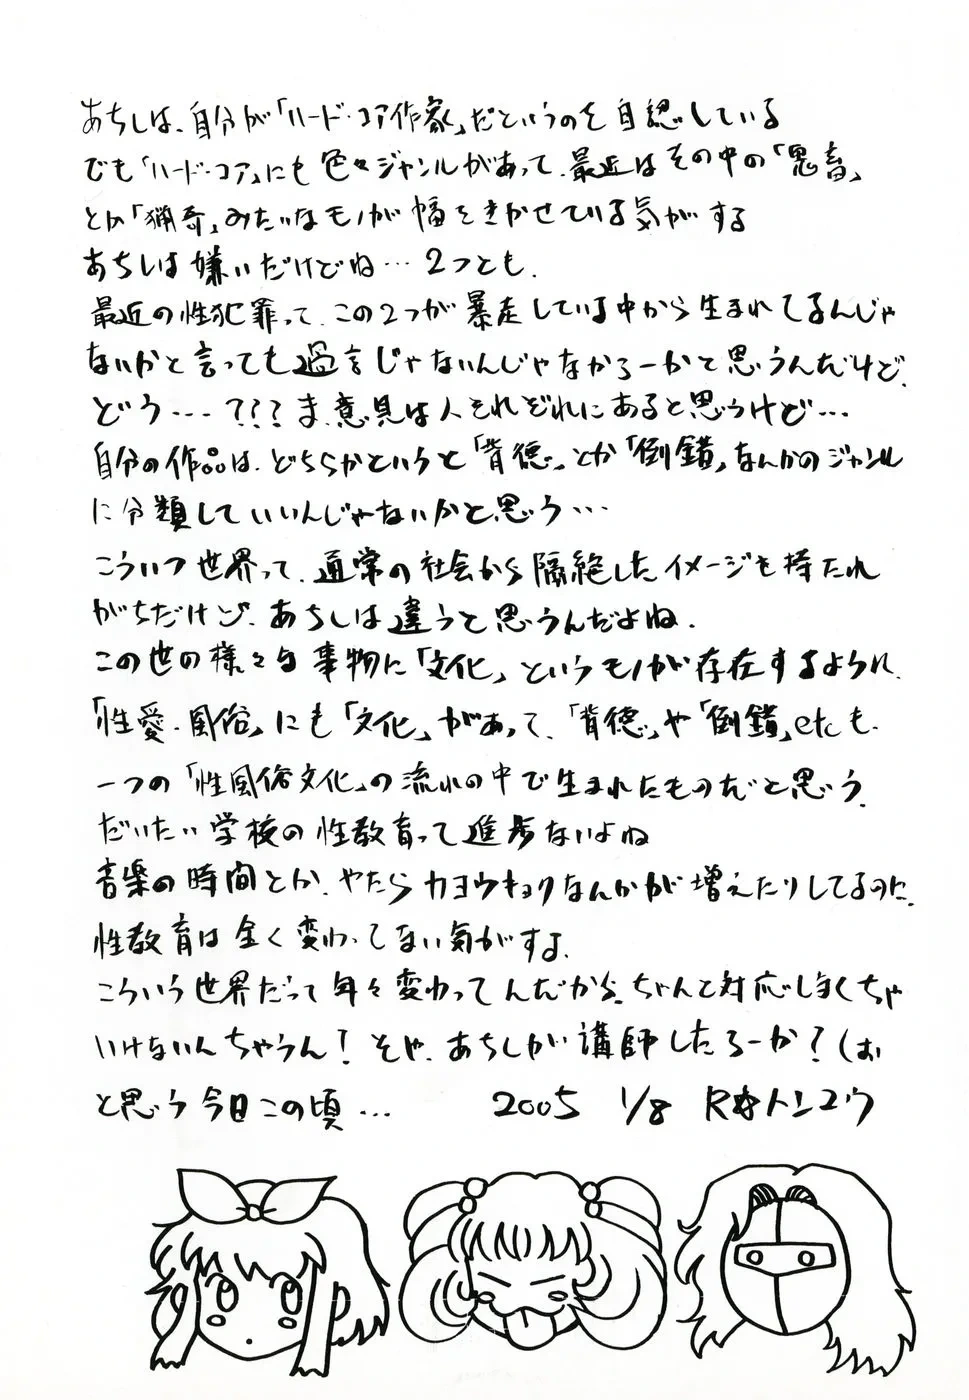 あちしは、自分が「ハード・コア作家」だというのを自認している
でも「ハード・コア」にも色々ジャンルがあって、最近はその中の「鬼畜」
とか「猟奇」みたいなモノが幅をきかせている気がする
あちしは嫌いだけどね…2つとも。
最近の性犯罪って、この2つが暴走している中から生まれてるんじゃ
ないかと言っても過言じゃないんじゃなかろーかと思うんだけど、
どう…???ま、意見は人それぞれにあると思うけど…
自分の作品は、どちらかというと「背徳」とか「倒錯」なんかのジャンル
に分類していいんじゃないかと思う…
こういつ世界って、通常の社会から隔絶したイメージを持たれ
がちだけど、あちしは違うと思うんだよね。
この世の様々な事物に「文化」というモノが存在するように、
「性愛・風俗」にも「文化」があって、「背徳」や「倒錯」etcも、
一つの「性風俗文化」の流れの中で生まれたものだと思う。
だいたい学校の性教育って進歩ないよね
音楽の時間とか、やたらカヨウキョクなんかが増えたりしてるのに、
性教育は全く変わってない気がする。
こういう世界だって年々変わってんだから、ちゃんと対応しなくちゃ
いけないんちゃうん!そや、あちしが講師したろーか?(お
と思う今日この頃…　2005 1/8 R・トンユウ